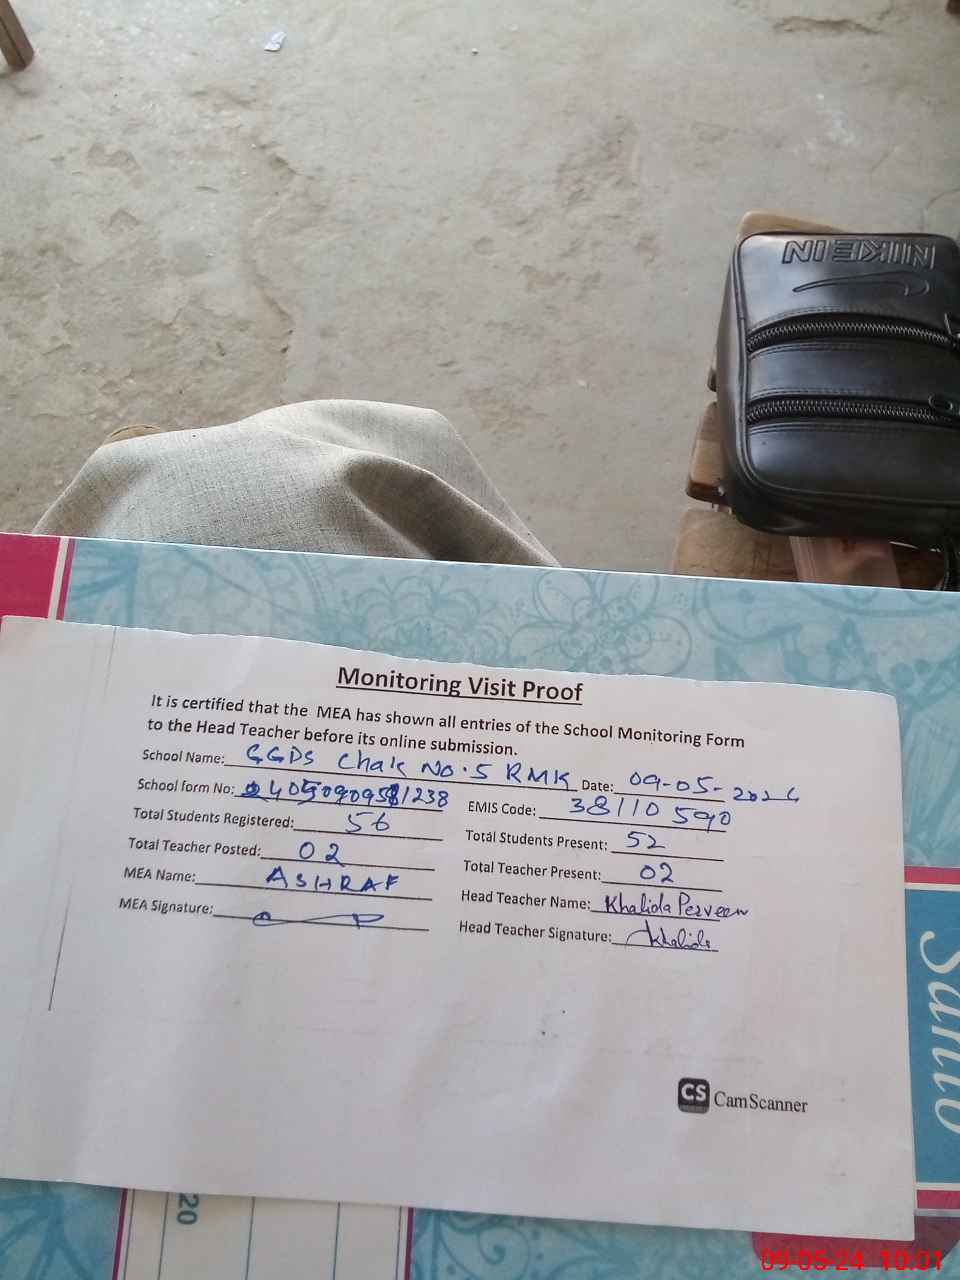 NIKE IN
Monitoring Visit Proof
It is certified that the MEA has shown all entries of the School Monitoring Form
to the Head Teacher before its online submission.
School Name: GGDS Chak No. 5 RMK Date: 09-05-2024
School form No:
EMIS Code: 38110590
Total Students Registered: 56 Total Students Present: 52
Total Teacher Posted: 02 Total Teacher Present: 02
MEA Name: ASHRAF Head Teacher Name: Khalida Perveen
MEA Signature: Head Teacher Signature: Khalida
CS CamScanner
20
09-05-24 10:01